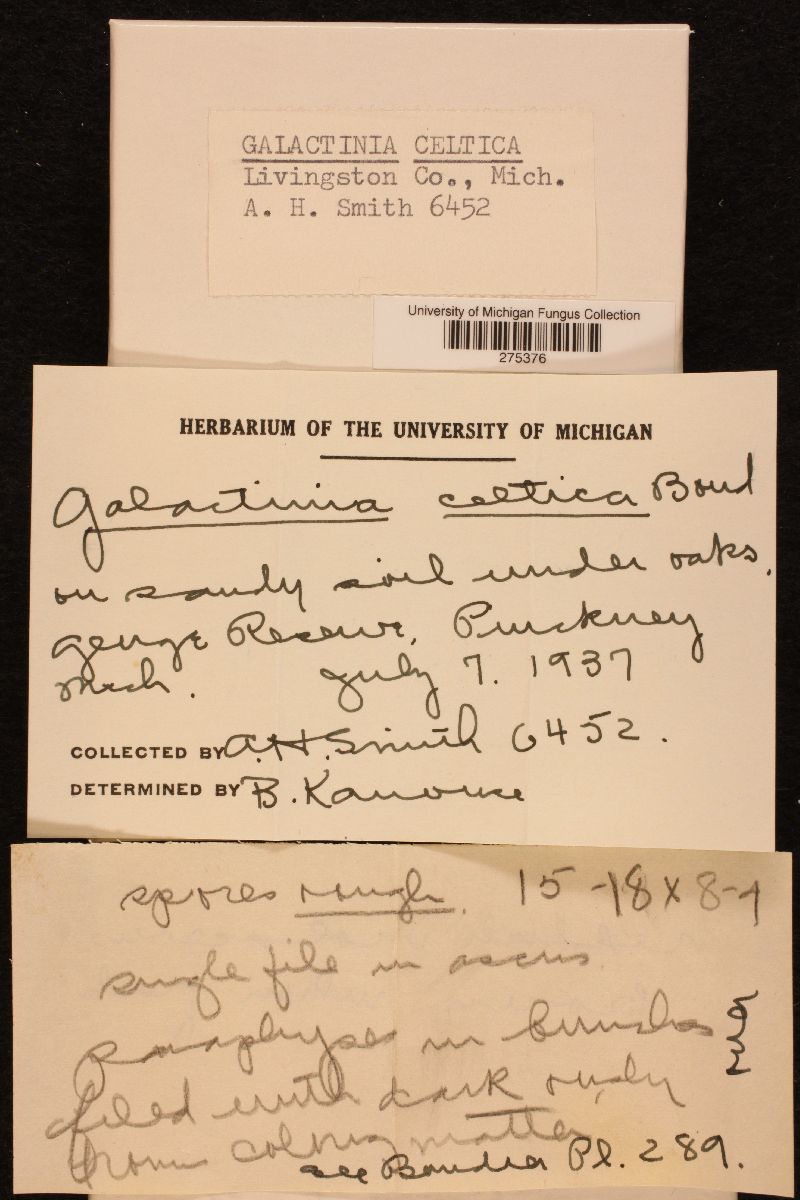 GALACTINIA CELTICA
Livingston Co., Mich.
A. H. Smith 6452
University of Michigan Fungus Collection
275376
HERBARIUM OF THE UNIVERSITY OF MICHIGAN
Galactinia celtica Boud
on sandy soil under oaks.
George Reserve, Pinckney
Mich. July 7. 1937
COLLECTED BY A.H. Smith 6452.
DETERMINED BY B. Kanouse
spores rough. 15-18 x 8-9
single file in ascus
paraphyses in bunches
filled with dark rusty
brown coloring matter
see Boudier Pl. 289.